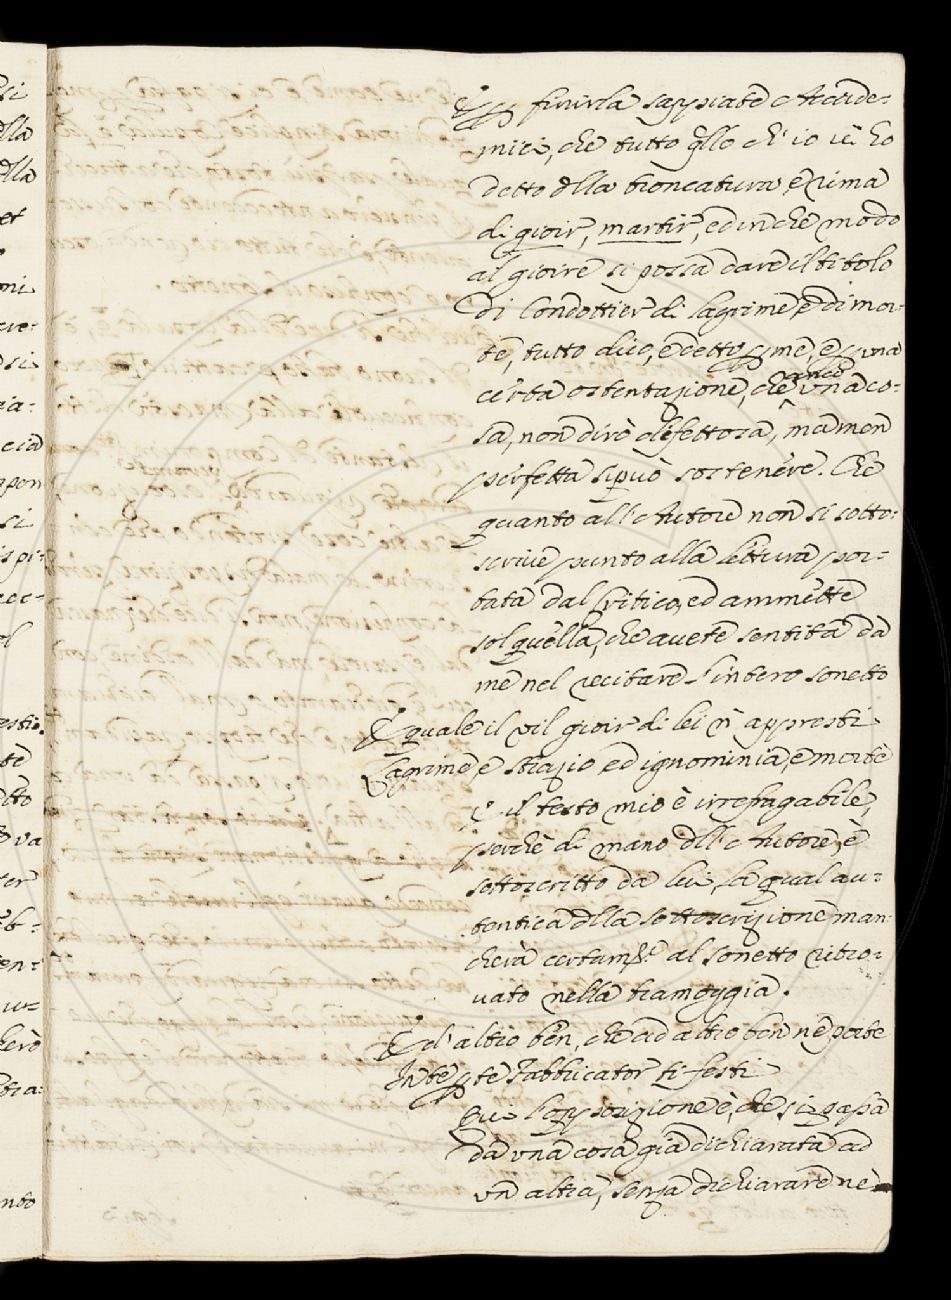 E p finirla sappiate Accade-
mici, che tutto qllo ch' io vi ho
detto dlla troncatura e rima
di gioir, martir, ed in che modo
al gioire si possa dare il titolo
di Condottier di lagrime, e di mor-
te, tutto dico, è detto p me, e p una
certa ostentazione, che anco una co-
sa, non dirò difettosa, ma men
perfetta si può sostenere. Che
quanto all' Autore non si sotto-
scrive punto alla lettura por-
tata dal Critico, ed ammette
sol quella, che avete sentita da
me nel recitare l' intero sonetto
E quale il vil gioir di lei n' appresti
Lagrime e strazio ed ignominia, e morte
E il testo mio è irrefragabile,
perchè di mano dll' Autore, è
sottoscritto da lui, la qual au-
tentica dlla sottoscrizione man-
cherà certamte al sonetto ritro-
vato nella tramoggia.
E d' altro ben, che ad altro ben ne porte
In te p te fabbricator ti festi
Qui l' opposizione è, che si passa
da una cosa già dichiarata ad
un altra, senza dichiarare nè
si
dlla
dlla
et
mi
si
cia
pon
si
l
te
tto
va
ter
ndo